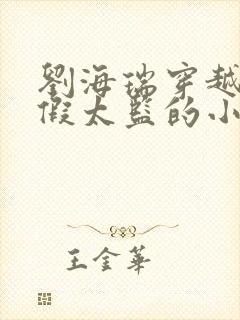 劉海瑞穿越
假太監的小
王金華